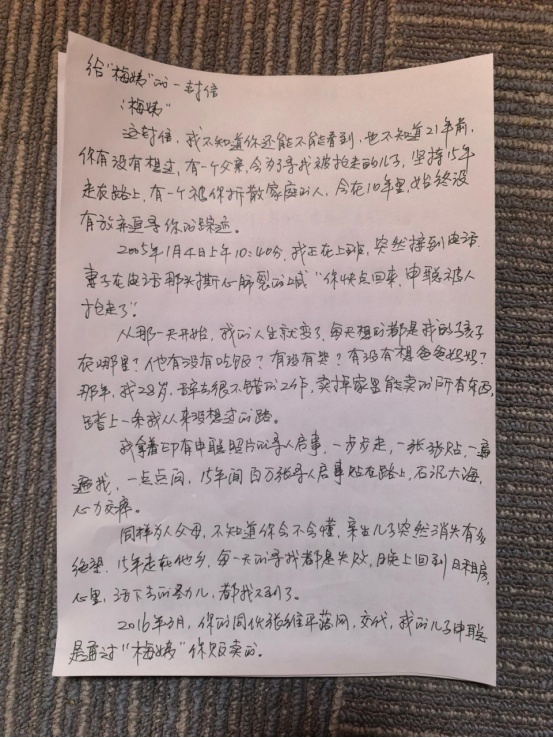 给“梅姨”的一封信
“梅姨”
这封信，我不知道你还能不能看到，也不知道21年前，
你有没有想过，有一个父亲，会为了寻找被抢走的儿子，坚持15年
走在路上，有一个被你拆散家庭的人，会在10年里，始终没
有放弃追寻你的踪迹。
2005年1月4日上午10:40分，我正在上班，突然接到电话
妻子在电话那头撕心解裂的喊“你快点回来，申聪被人
抢走了”。
从那一天开始，我的人生就变了，每天想的都是我的孩子
在哪里？他有没有吃饭？有没有哭？有没有想爸爸妈妈？
那年，我28岁，辞去很不错的工作，卖掉家里能卖的所有东西，
踏上一条我从来没想过的路。
我拿着印有申聪照片的寻人启事，一步步走，一张张贴，一遍
遍找，一点点问，15年间百万张寻人启事贴在路上，石沉大海，
心力交瘁。
同样为人父母，不知道你会不会懂，亲生儿子突然消失有多
绝望，15年走在他乡，每一天的寻找都是失败，晚上回到日租房，
心里，活下去的劲儿，都找不到了。
2016年3月，你的同伙张维平落网，交代，我的儿子申聪
是通过“梅姨”你贩卖的。